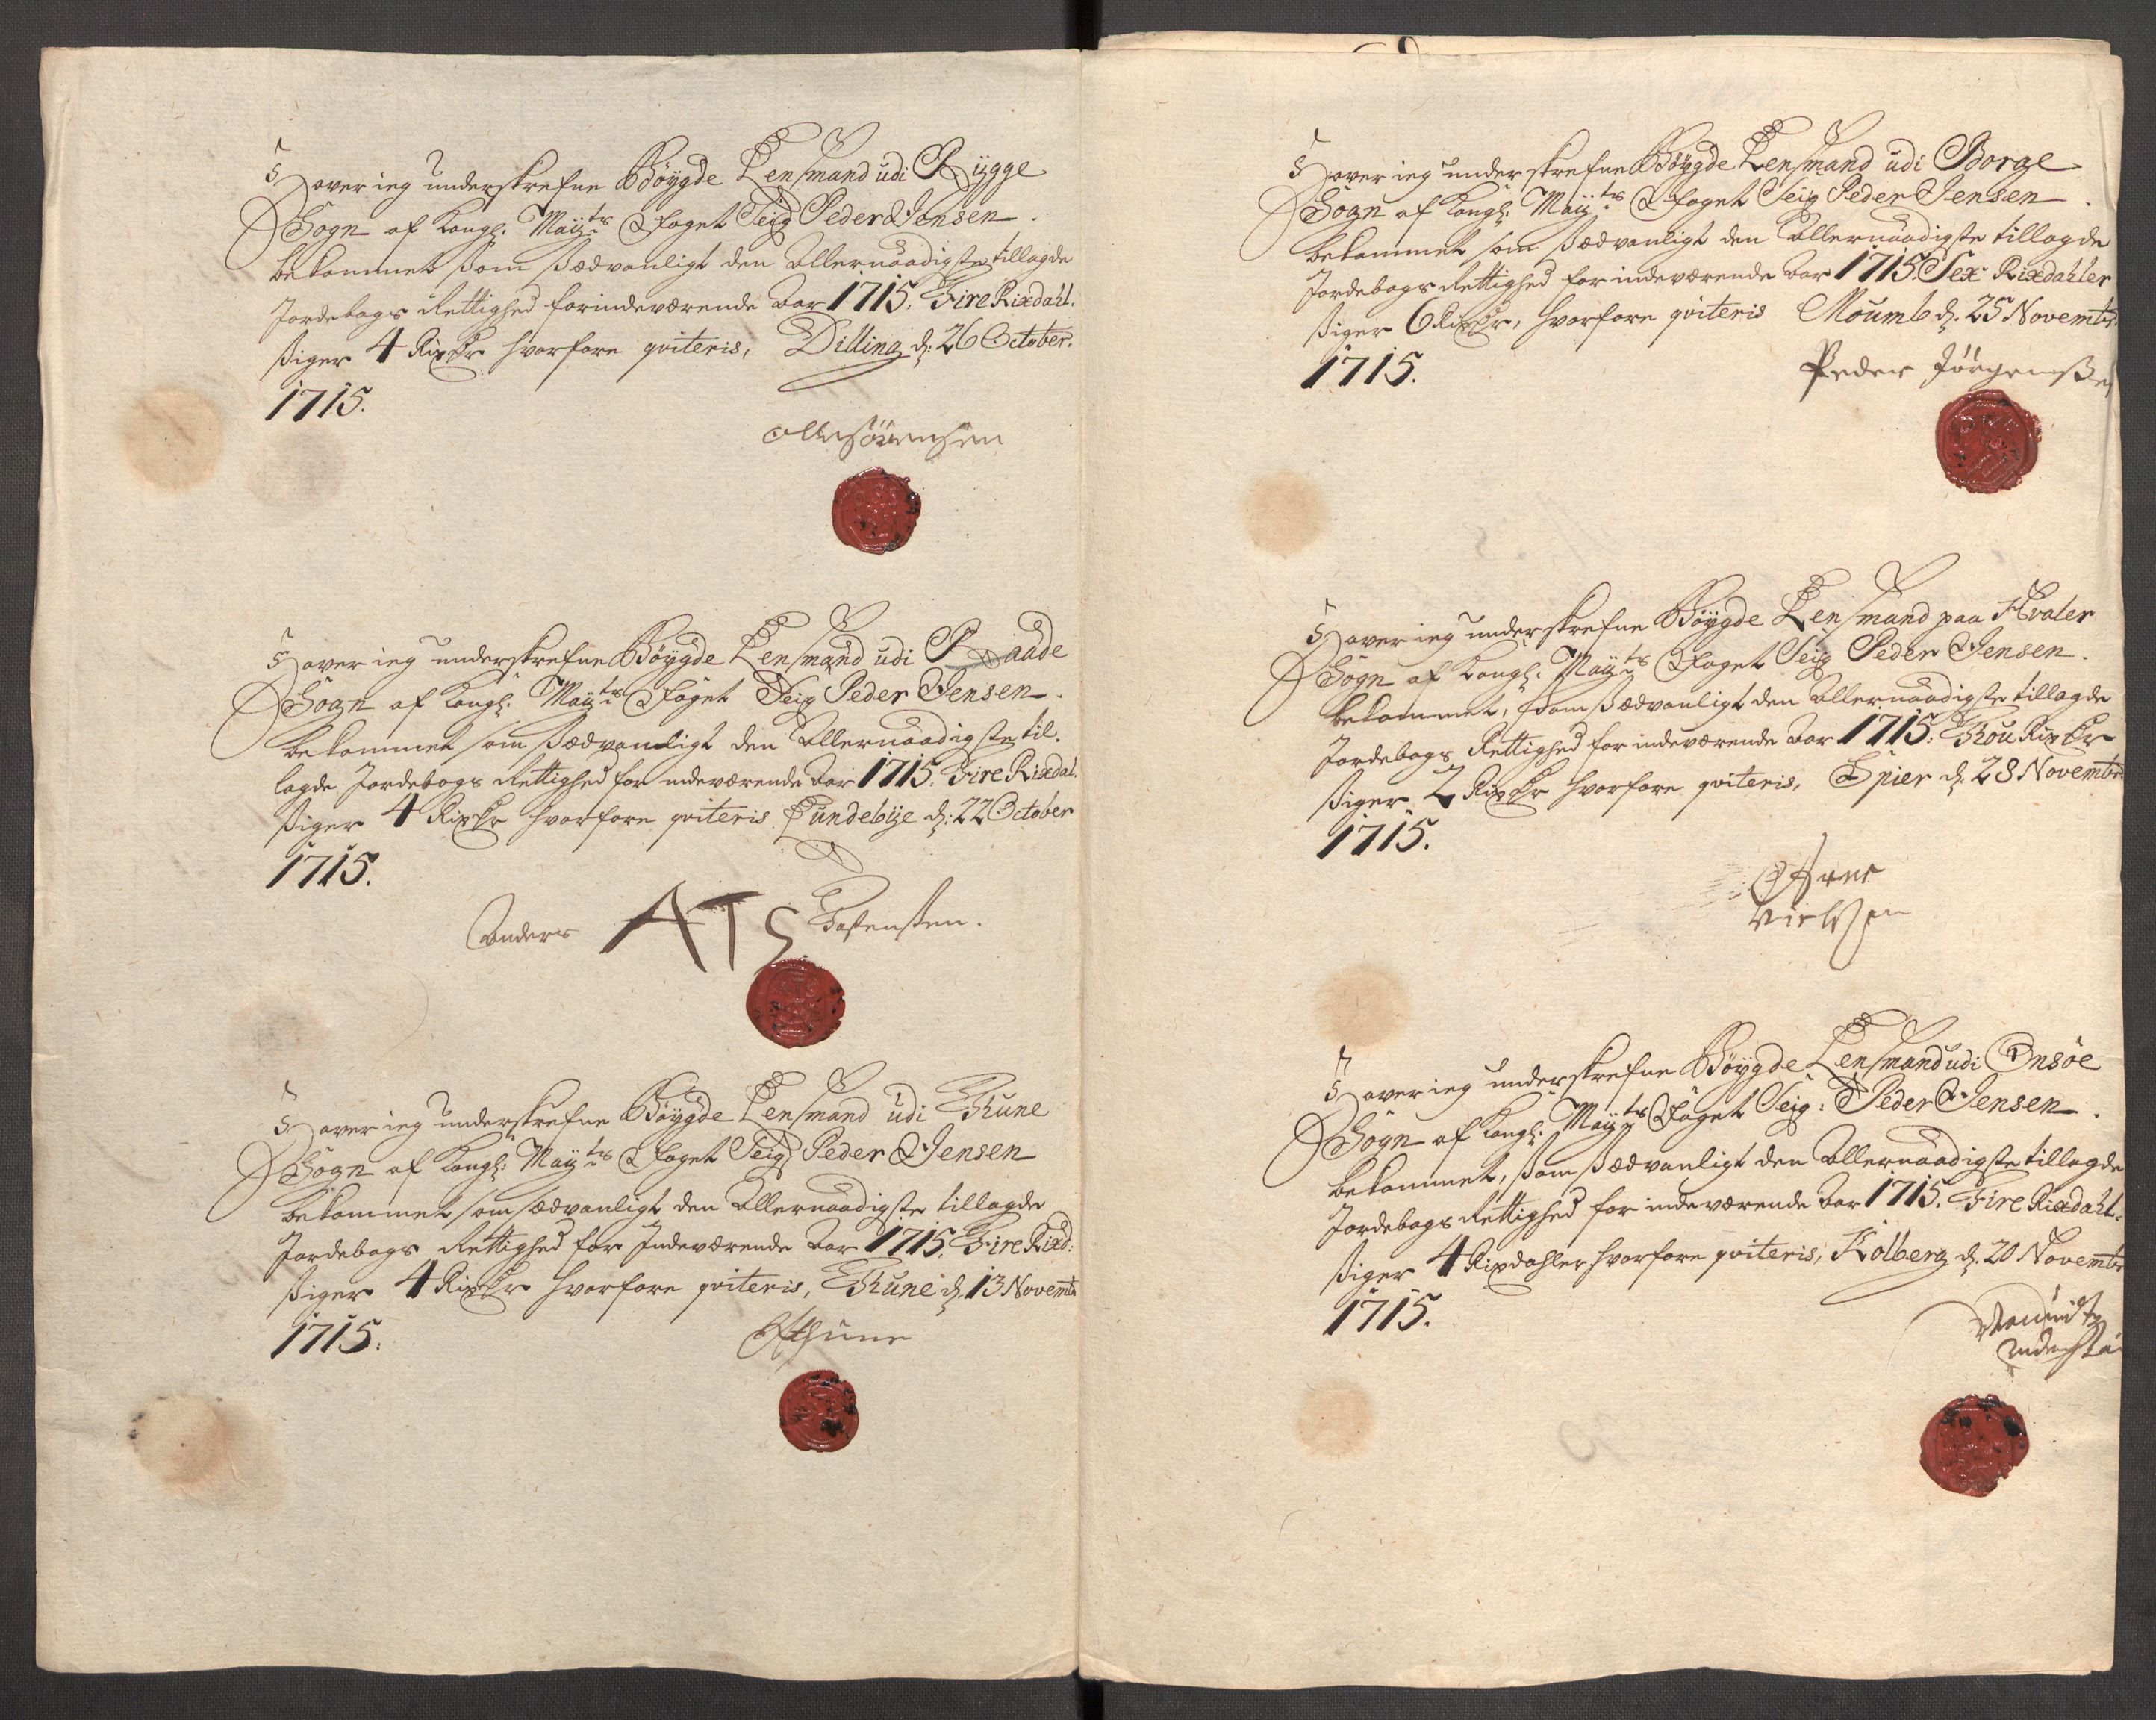 Hawer ieg underskrefne Bøygde Lensmand udi Rygge
Sogn af Kongl. Mayts Foget Seig Peder Jensen.
bekommet som sædvanligt den Allernaadigste tillagde
Jordebogs Rettighed for indeværende Aar 1715. Fire Rixdahl.
siger 4 Rixdr hvorfore qviteris, Dilling d. 26 October.
1715.
Olle Sörensen
Hawer ieg underskrefne Bøygde Lensmand udi Raade
Sogn af Kongl. Mayts Foget Seig Peder Jensen.
bekommet som sædvandligt den Allernaadigste til.
lagde Jordebogs Rettighed for indeværende Aar 1715. Fire Rixdal.
siger 4 Rixdr hvorfore qviteris Lundebÿe d: 22 October
1715.
Anders ATS
Hawer ieg underskrefne Bøygde Lensmand udi Thune
Sogn af Kongl: Mayts Foget Seig Peder Jensen
bekommet som sædvanligt den Allernaadigste tillagde
Jordebogs Rettighed for Indeværende Aar 1715. Fire Rixd:
siger 4 Rixdr hvorfore qviteris, Thune d. 13 Novemb
1715.
Hawer ieg underskrefne Bøygde Lensmand udi Borge
Sogn af Kongl. Mayts Foget Seig Peder Jensen.
bekommet som sædvanligt den Allernaadigste tillagde
Jordebogs Rettighed for indeværende Aar 1715. Sex Rixdahler
siger 6 Rixdr, hvorfore qviteris Moumb d. 25 Novembr.
1715.
Peder Jörgensen
Hawer ieg underskrefne Bøygde Lensmand paa Hvaler
Sogn af Kongl. Mayts Foget Seig Peder Jensen.
bekommet, som sædvanligt den Allernaadigste tillagde
Jordebogs Rettighed for indeværende Aar 1715. Thou Rixdr
siger 2 Rixdr hvorfore qviteris, Spier d. 28 Novembr
1715.
Nielsen
Hawer ieg underskrefne Bøygde Lensmand udi Onsøe
Sogn af Kongl. Mayts Foget Seig: Peder Jensen.
bekommet, som sædvanligt den Allernaadigste tillagde
Jordebogs Rettighed for indeværende Aar 1715. Fire Rixdahl.
siger 4 Rixdahler hvorfore qviteris, Kolberg d. 20 Novembr
1715.